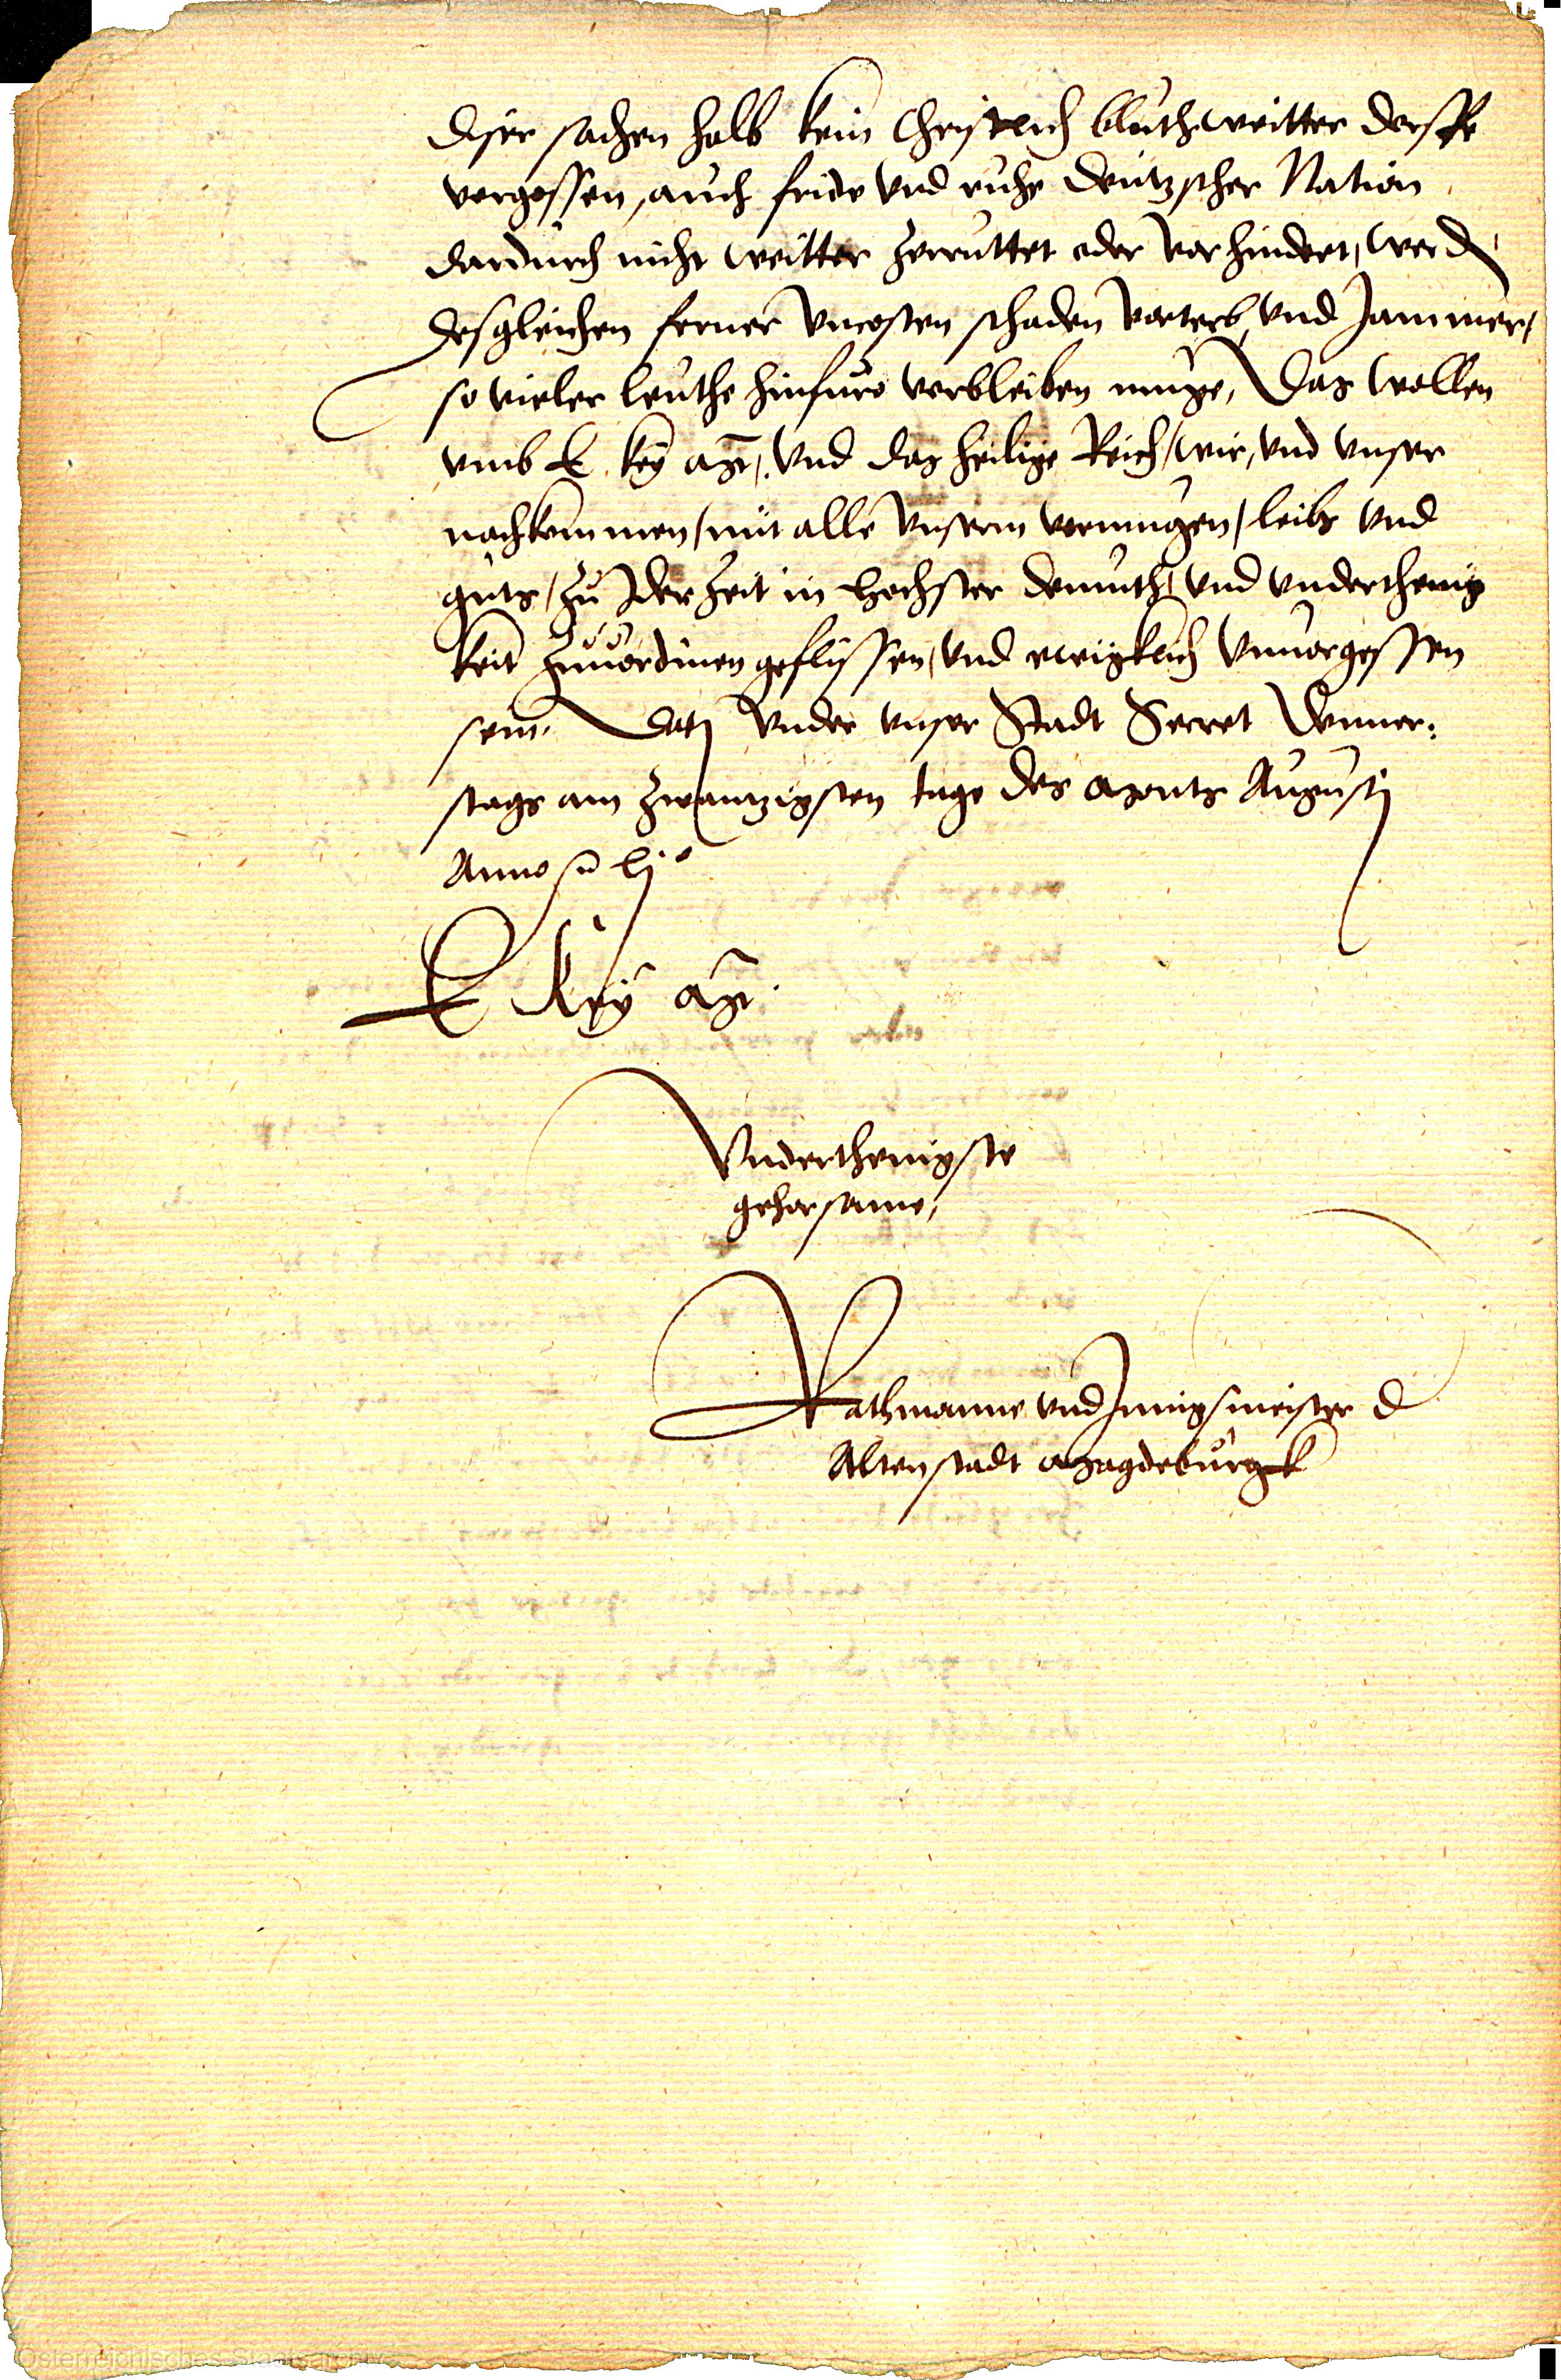 diser sachen halb kein Christlich bluth weitter dorffe
vergossen, auch fride vnd ruhe deutzscher Nation,
dardurch nicht weitter zerruttet oder vorhindert, werd,
desgleichen ferner vncosten schaden vorterb, vnd Jammer,
so vieler leuthe hinfuro verbleiben muge, Das wollen
vmb E. key Mt, vnd das heilige Reich, wir, vnd vnser
nachkommen, mit alle vnserm vermugen, leibs vnd
guts, zu Jderzeit in hochster demuth, vnd vnderthenig
keit zuuordinen geflissen, vnd ewigklich vnuorgessen
sein. Datj vnder vnser Stadt Secret Donner:
stags am zwantzigsten tage des Monts Augustj
Anno lj°
E Key Mt.
Vnderthenigste
gehorsame,
Rathmanne vnd Jnnigsmeister d
Altenstadt Magdeburgk
Österreichisches Staatsarchiv